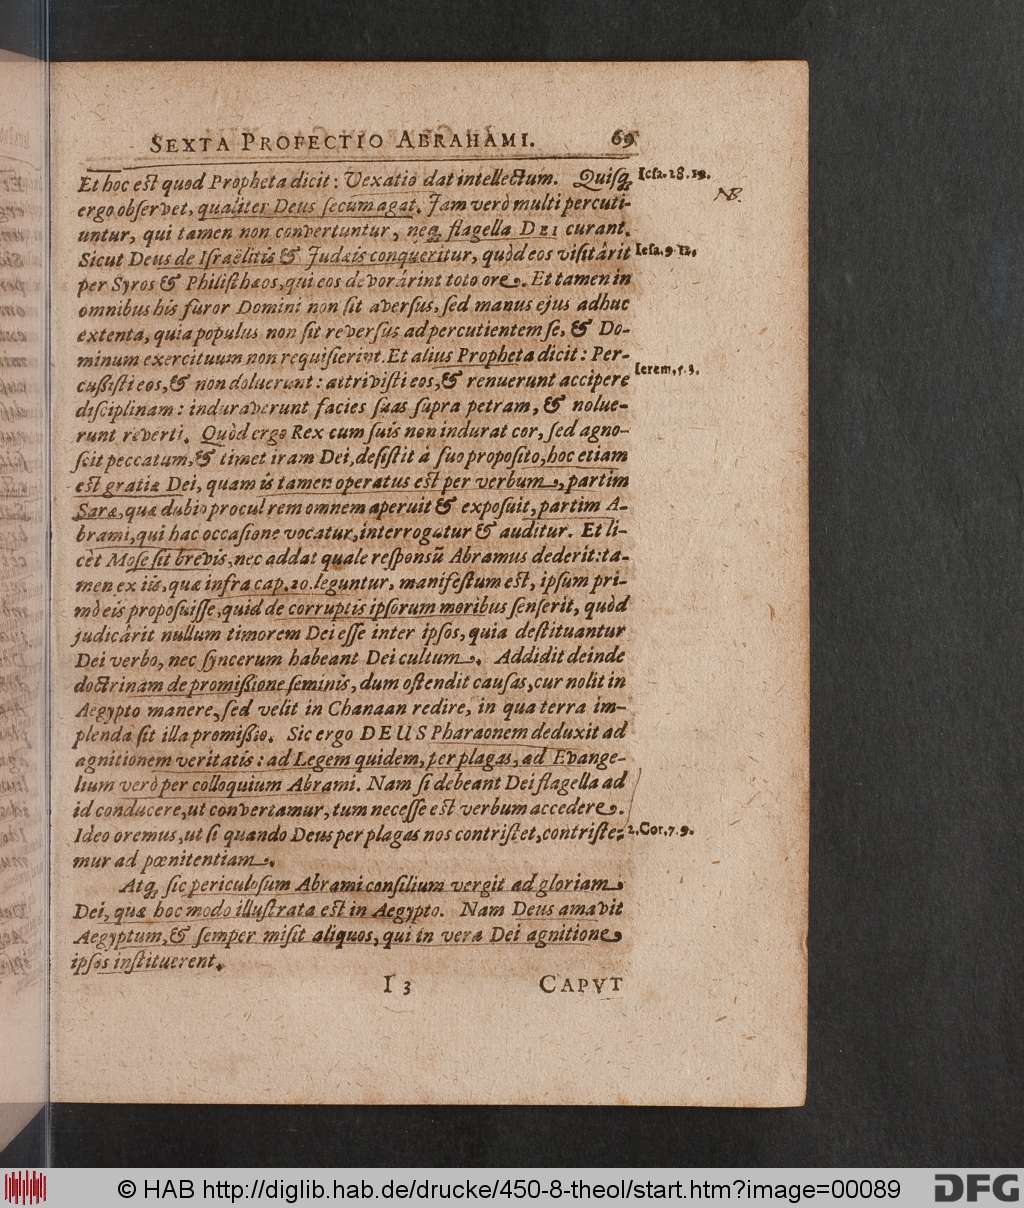 SEXTA PROFECTIO ABRAHAMI. 69
Et hoc est quod Propheta dicit: Vexatio dat intellectum. Quisq; Iesa. 28. 19.
ergo observet, qualiter Deus secum agat. Jam verò multi percuti- NB.
untur, qui tamen non convertuntur, neq; flagella DEI curant.
Sicut Deus de Israëlitis & Judæis conqueritur, quòd eos visitârit Iesa. 9. 12.
per Syros & Philisthæos, qui eos devorârint toto ore. Et tamen in
omnibus his furor Domini non sit aversus, sed manus ejus adhuc
extenta, quia populus non sit reversus ad percutientem se, & Do-
minum exercituum non requisierint. Et alius Propheta dicit: Per-
cußisti eos, & non doluerunt: attrivisti eos, & renuerunt accipere Ierem. 5. 3.
disciplinam: induraverunt facies suas supra petram, & nolue-
runt reverti. Quòd ergo Rex cum suis non indurat cor, sed agno-
scit peccatum, & timet iram Dei, desistit à suo proposito, hoc etiam
est gratiæ Dei, quam is tamen operatus est per verbum, partim
Saræ, quæ dubio procul rem omnem aperuit & exposuit, partim A-
brami, qui hac occasione vocatur, interrogatur & auditur. Et li-
cèt Mose sit brevis, nec addat quale responsū Abramus dederit: ta-
men ex iis, quæ infra cap. 20. leguntur, manifestum est, ipsum pri-
mò eis proposuisse, quid de corruptis ipsorum moribus senserit, quòd
judicârit nullum timorem Dei esse inter ipsos, quia destituantur
Dei verbo, nec syncerum habeant Dei cultum. Addidit deinde
doctrinam de promißione seminis, dum ostendit causas, cur nolit in
Aegypto manere, sed velit in Chanaan redire, in qua terra im-
plenda sit illa promißio. Sic ergo DEUS Pharaonem deduxit ad
agnitionem veritatis: ad Legem quidem, per plagas, ad Evange-
lium verò per colloquium Abrami. Nam si debeant Dei flagella ad
id conducere, ut convertamur, tum necesse est verbum accedere.
Ideo oremus, ut si quando Deus per plagas nos contristet, contriste- 2. Cor. 7. 9.
mur ad pœnitentiam.
Atq; sic periculosum Abrami consilium vergit ad gloriam
Dei, quæ hoc modo illustrata est in Aegypto. Nam Deus amavit
Aegyptum, & semper misit aliquos, qui in vera Dei agnitione
ipsos instituerent.
I 3 CAPVT
© HAB http://diglib.hab.de/drucke/450-8-theol/start.htm?image=00089 DFG